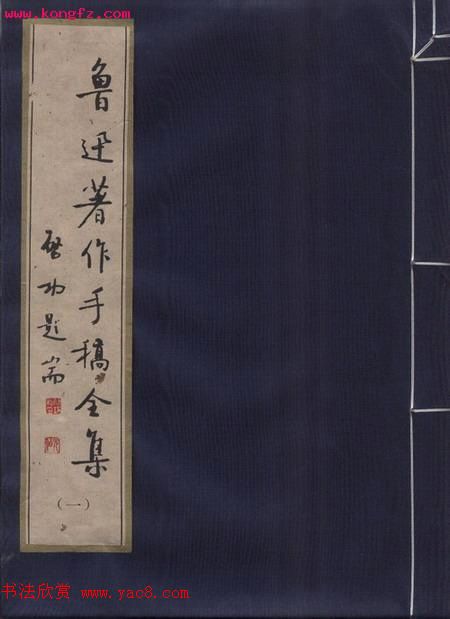 www.kongfz.com
鲁迅著作手稿全集
启功题耑
（一）
书法欣赏 www.yac8.com